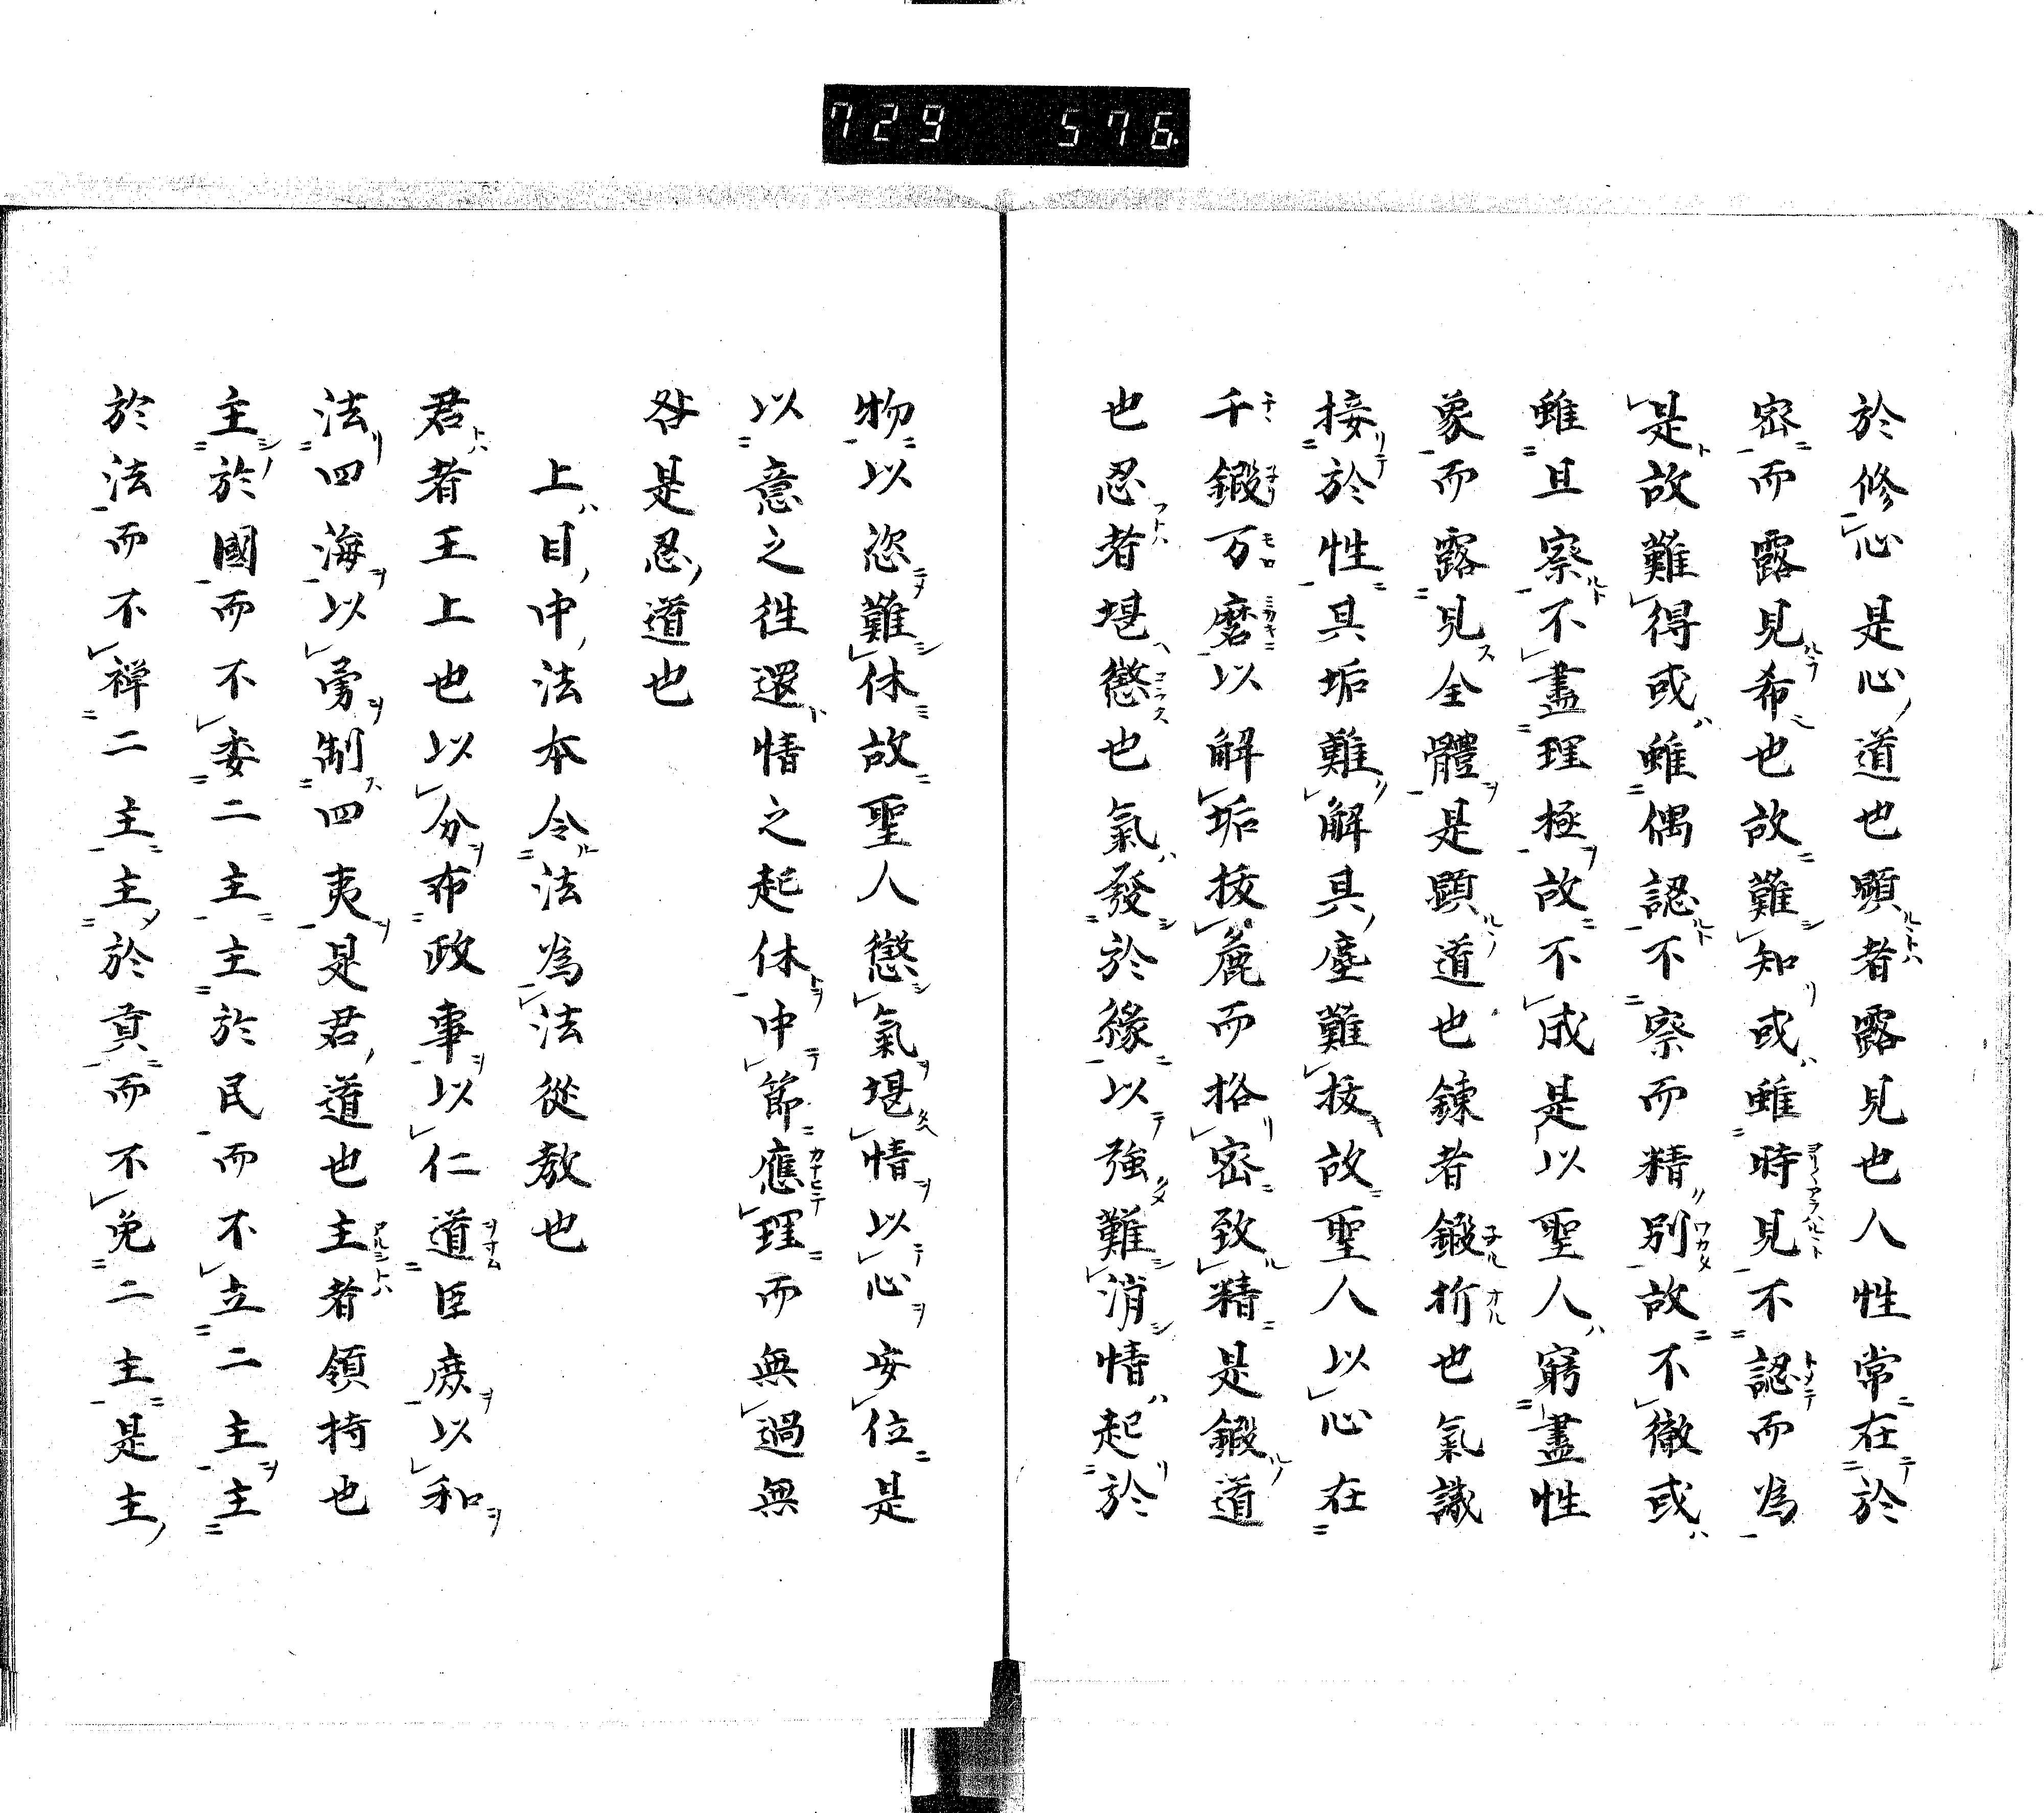 729 576
於修心是心道也顕者露見也人性常在於
密而露見希也故難知或雖時見不認而為
是故難得或雖偶認不察而精別故不徹或
雖且察不盡理極故不成是以聖人窮盡性
象而露見全體是顕道也錬者鍛折也氣識
接於性具垢難解具塵難抜故聖人以心在
千鍛万磨以解垢抜麁而格密致精是鍛道
也忍者堪懲也氣發於緣以強難消情起於
物以恣難休故聖人懲氣堪情以心安位是
以意之往還情之起休中節應理而無過無
咎是忍道也
上目中法本令法為法從教也
君者王上也以分布政事以仁道臣庶以和
法四海以勇制四夷是君道也主者領持也
主於國而不委二主主於民而不立二主主
於法而不禅二主主於貢而不免二主是主